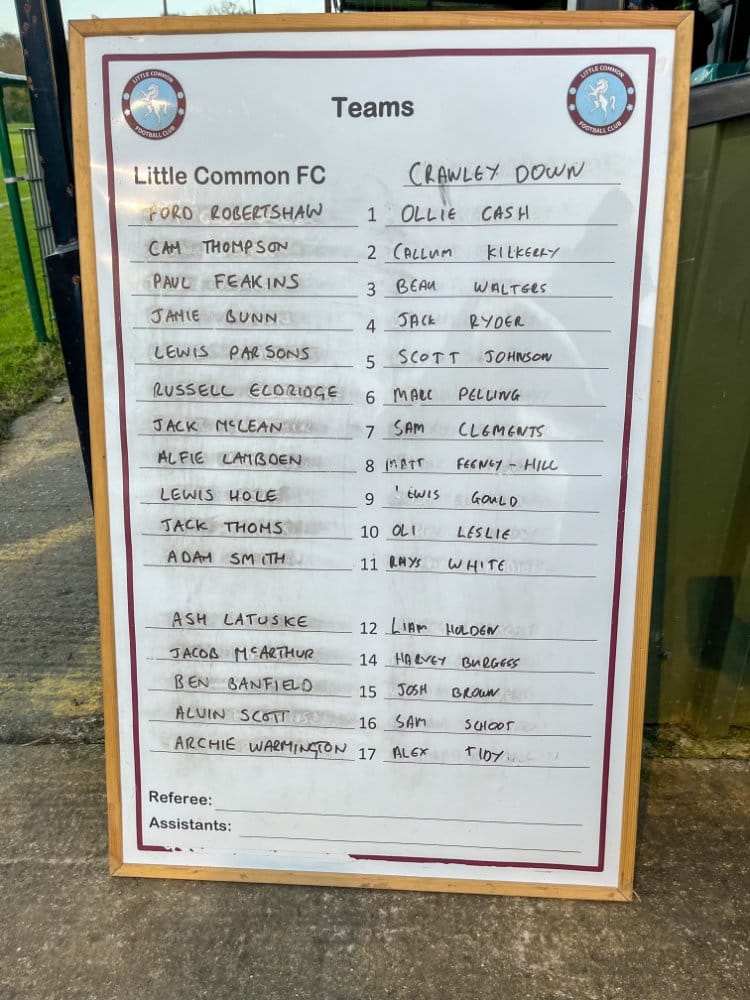 LITTLE COMMON FOOTBALL CLUB
LITTLE COMMON FOOTBALL CLUB
Teams
Little Common FC CRAWLEY DOWN
FORD ROBERTSHAW 1 OLLIE CASH
CAM THOMPSON 2 CALLUM KILKERRY
PAUL FEAKINS 3 BEAU WALTERS
JAMIE BUNN 4 JACK RYDER
LEWIS PARSONS 5 SCOTT JOHNSON
RUSSELL ELDRIDGE 6 MARC PELLING
JACK McLEAN 7 SAM CLEMENTS
ALFIE LAMBDEN 8 MATT FEENEY-HILL
LEWIS HOLE 9 LEWIS GOULD
JACK THOMS 10 OLI LESLIE
ADAM SMITH 11 RHYS WHITE
ASH LATUSKE 12 LIAM HOLDEN
JACOB McARTHUR 14 HARVEY BURGESS
BEN BANFIELD 15 JOSH BROWN
ALVIN SCOTT 16 SAM SCHOOT
ARCHIE WARMINGTON 17 ALEX TIDY
Referee:
Assistants: